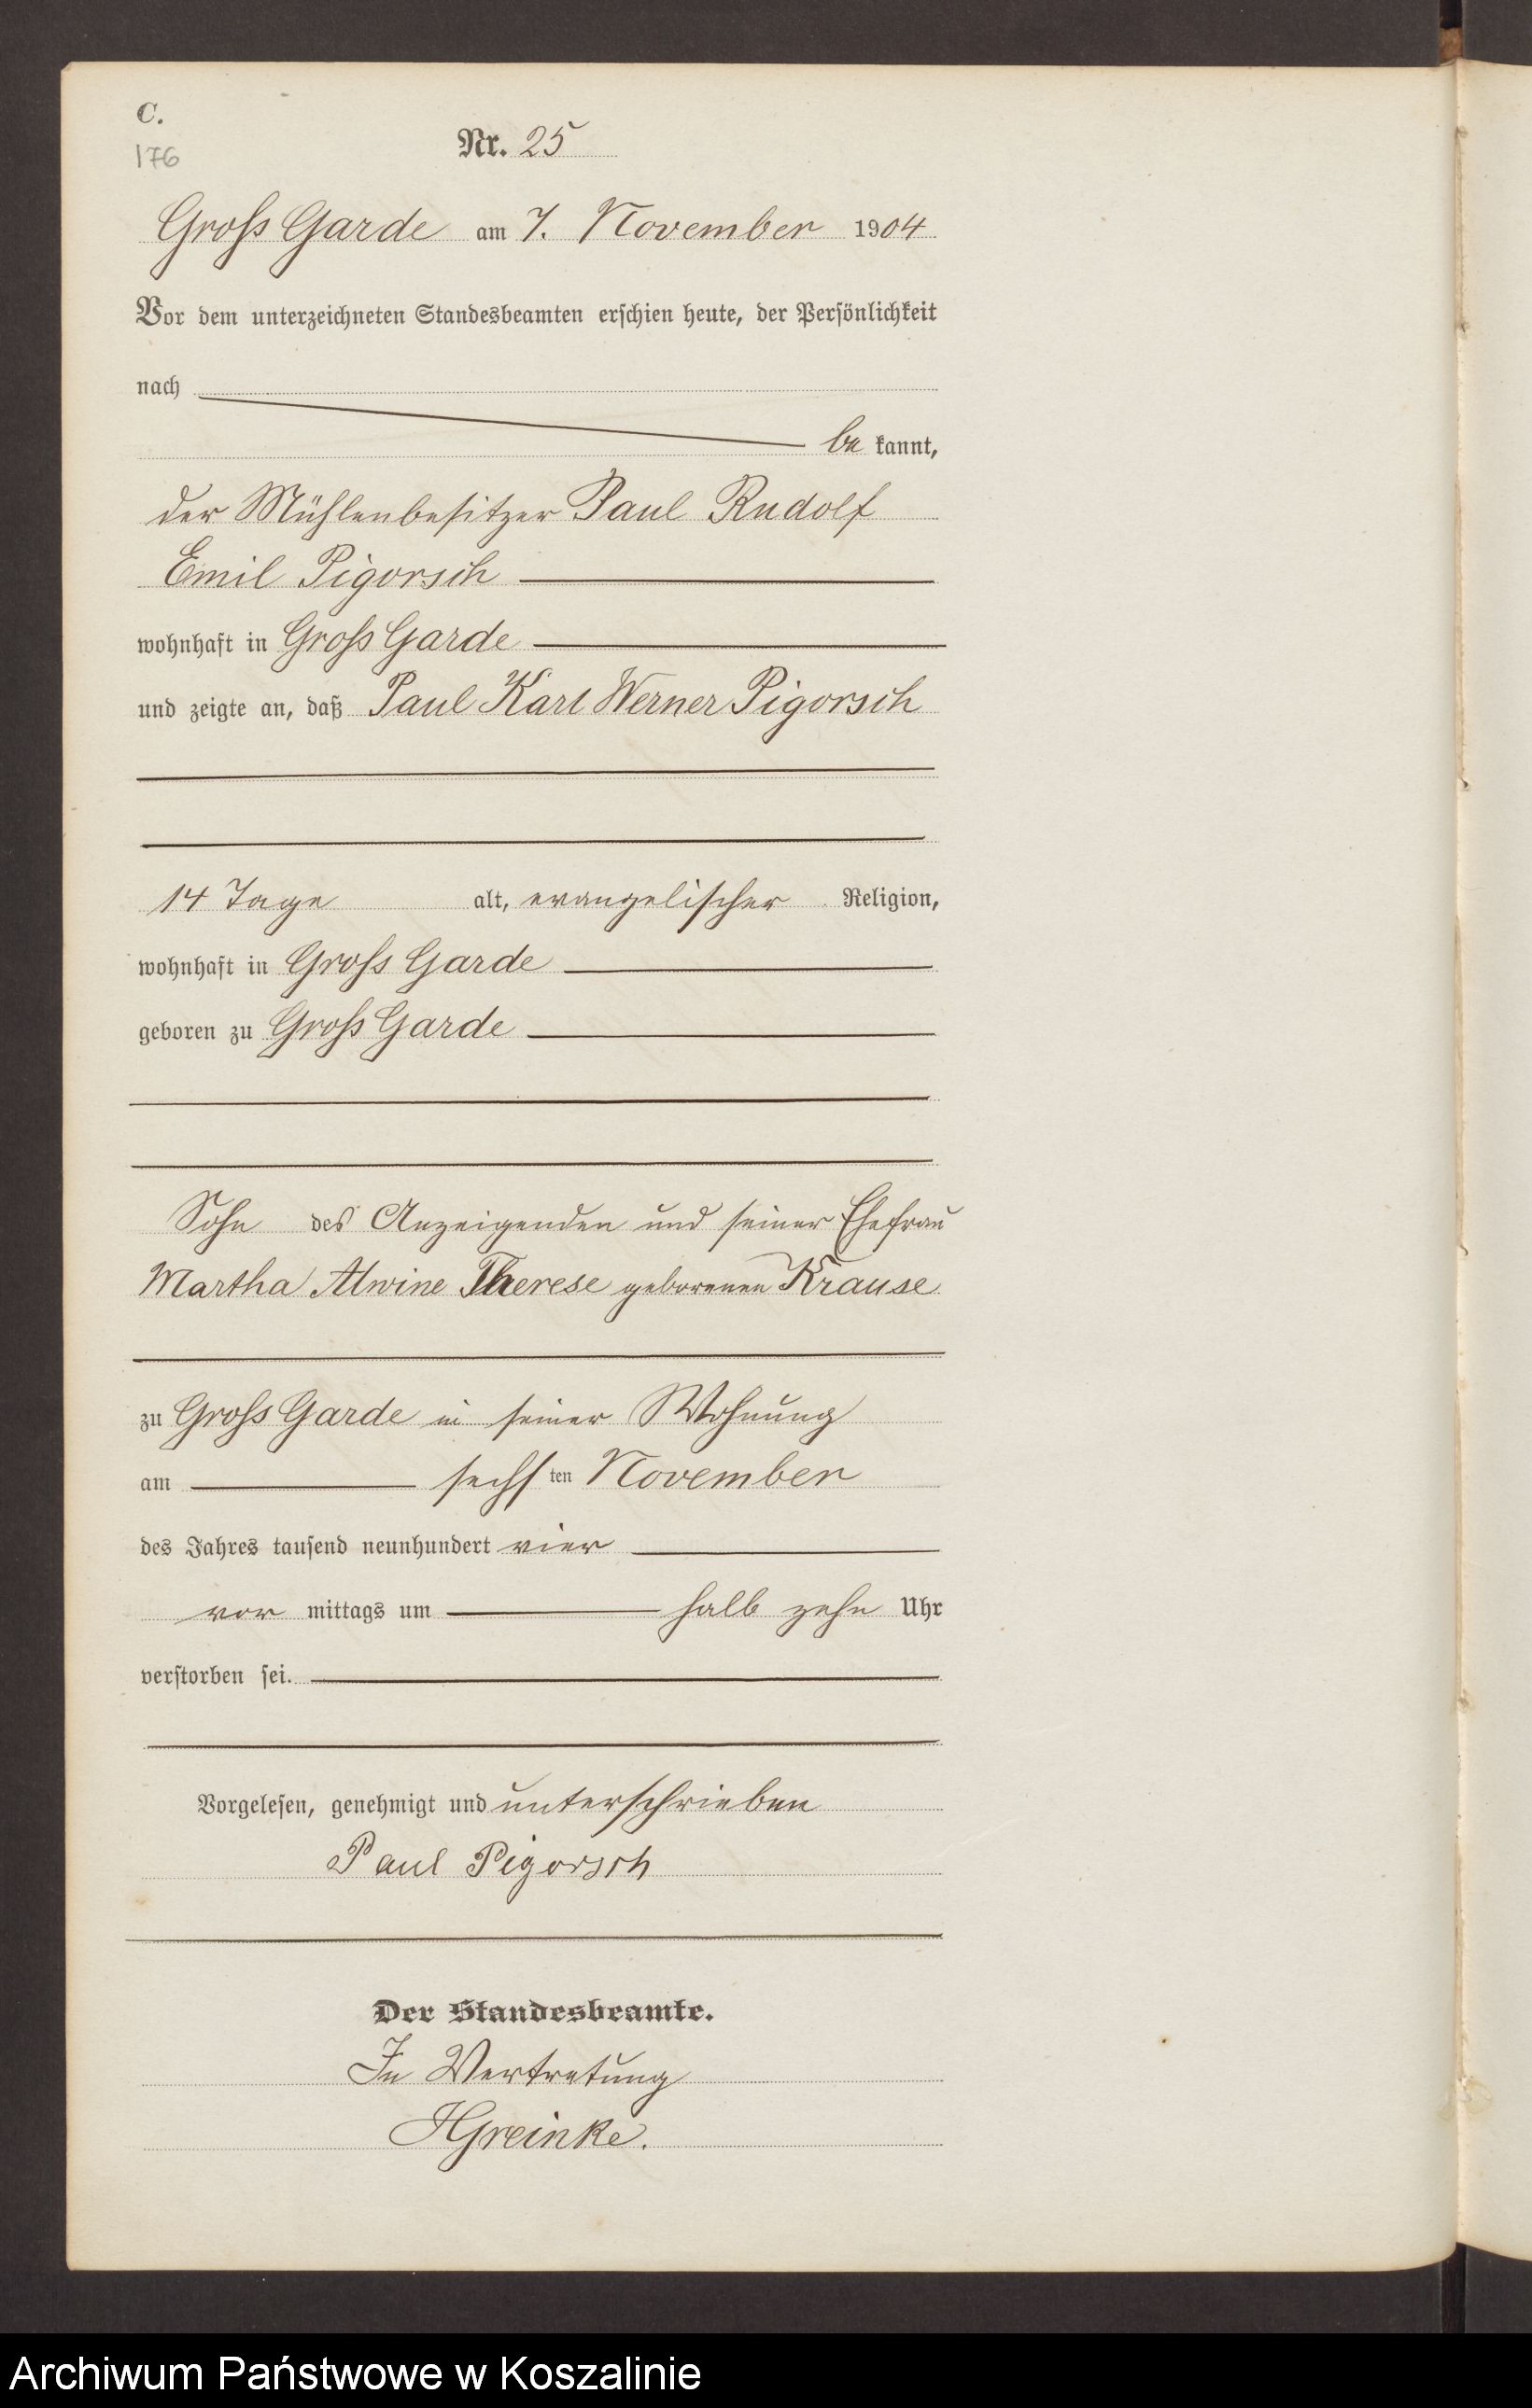 C.
176
Nr. 25
Gross Garde am 7. November 1904
Vor dem unterzeichneten Standesbeamten erschien heute, der Persönlichkeit
nach
be kannt,
der Mühlenbesitzer Paul Rudolf
Emil Pigorsch
wohnhaft in Gross Garde
und zeigte an, daß Paul Karl Werner Pigorsch
14 Tage alt, evangelischer Religion,
wohnhaft in Gross Garde
geboren zu Gross Garde
Sohn des Anzeigenden und seiner Ehefrau
Martha Alwine Therese geborenen Krause
zu Gross Garde in seiner Wohnung
am sechsten November
des Jahres tausend neunhundert vier
vor mittags um halb zehn Uhr
verstorben sei.
Vorgelesen, genehmigt und unterschrieben
Paul Pigorsch
Der Standesbeamte.
In Vertretung
HGreinke.
Archiwum Państwowe w Koszalinie